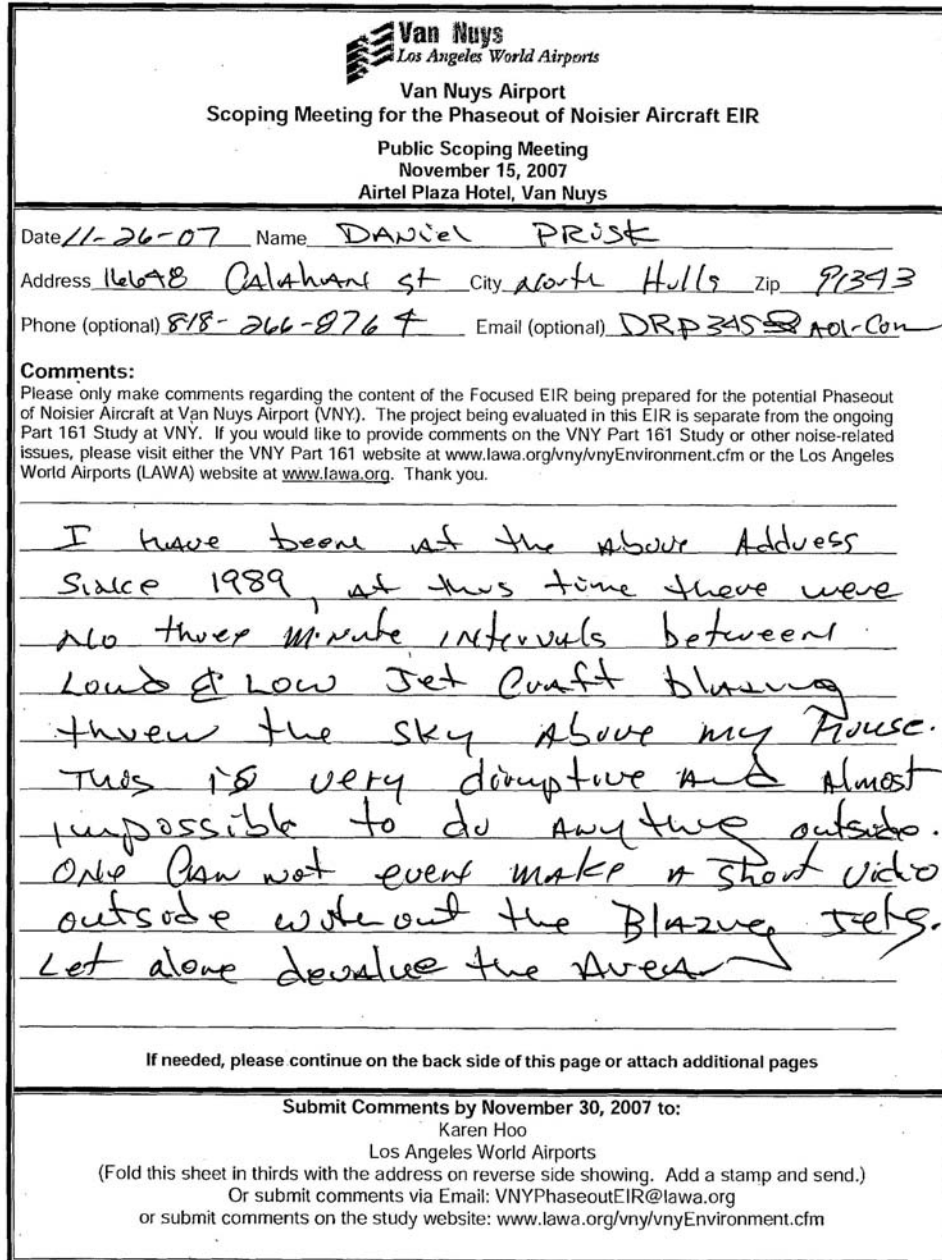 Van Nuys
Los Angeles World Airports
Van Nuys Airport
Scoping Meeting for the Phaseout of Noisier Aircraft EIR
Public Scoping Meeting
November 15, 2007
Airtel Plaza Hotel, Van Nuys
Date 11-26-07 Name DANiel PRiSK
Address 16648 CALAHAN St City North Hills Zip 91343
Phone (optional) 818-266-8764 Email (optional) DRP345@AOL.Com
Comments:
Please only make comments regarding the content of the Focused EIR being prepared for the potential Phaseout
of Noisier Aircraft at Van Nuys Airport (VNY). The project being evaluated in this EIR is separate from the ongoing
Part 161 Study at VNY. If you would like to provide comments on the VNY Part 161 Study or other noise-related
issues, please visit either the VNY Part 161 website at www.lawa.org/vny/vnyEnvironment.cfm or the Los Angeles
World Airports (LAWA) website at www.lawa.org. Thank you.
I have been at the above Address
Since 1989, at this time there were
No three minute intervals between
Loud & Low Jet Craft blazing
threw the sky Above my House.
This is very disruptive And Almost
impossible to do Anything outside.
One Can not even make a short Video
outside without the Blazing Jets.
Let alone devalue the Area
If needed, please continue on the back side of this page or attach additional pages
Submit Comments by November 30, 2007 to:
Karen Hoo
Los Angeles World Airports
(Fold this sheet in thirds with the address on reverse side showing. Add a stamp and send.)
Or submit comments via Email: VNYPhaseoutEIR@lawa.org
or submit comments on the study website: www.lawa.org/vny/vnyEnvironment.cfm